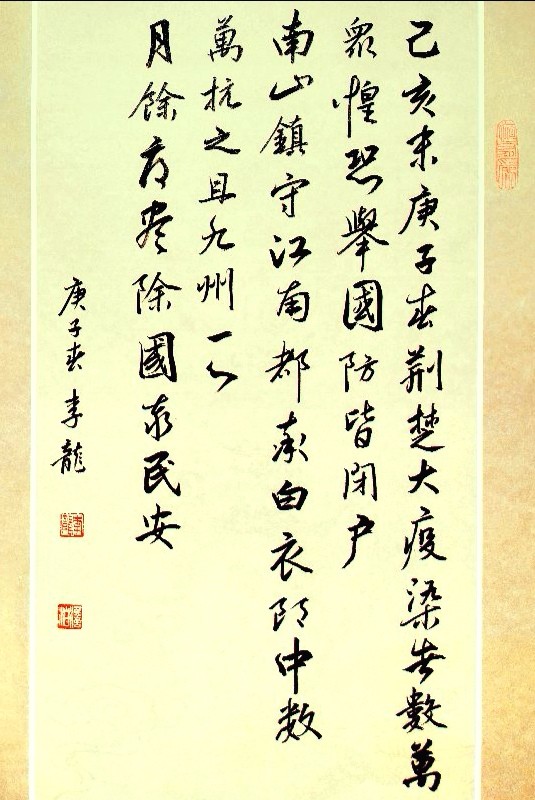 己亥末庚子春荆楚大疫染者數萬
眾惶恐舉國防皆閉户
南山鎮守江南都率白衣郎中数
萬抗之且九州一心
月餘疫尽除國泰民安
庚子春李龍